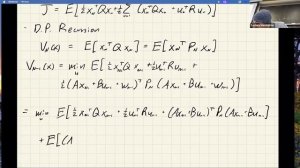 J = E[½xₙᵀQxₙ + ½Σ(xₙᵀQxₙ + uₙᵀRuₙ)]
· D.P. Recursion
Vₙ(x) = E[xₙᵀQₙxₙ] = E[xₙᵀPₙxₙ]
Vₙ₋₁(x) = min E[½xₙ₋₁ᵀQxₙ₋₁ + ½uₙ₋₁ᵀRuₙ₋₁
u
+ ½(Axₙ₋₁ + Buₙ₋₁ + wₙ₋₁)ᵀPₙ(Axₙ₋₁ + Buₙ₋₁ + wₙ₋₁)]
= min E[½xₙ₋₁ᵀQxₙ₋₁ + ½uₙ₋₁ᵀRuₙ₋₁ + (Axₙ₋₁ + Buₙ₋₁)ᵀPₙ(Axₙ₋₁ + Buₙ₋₁)]
u
+ E[(A